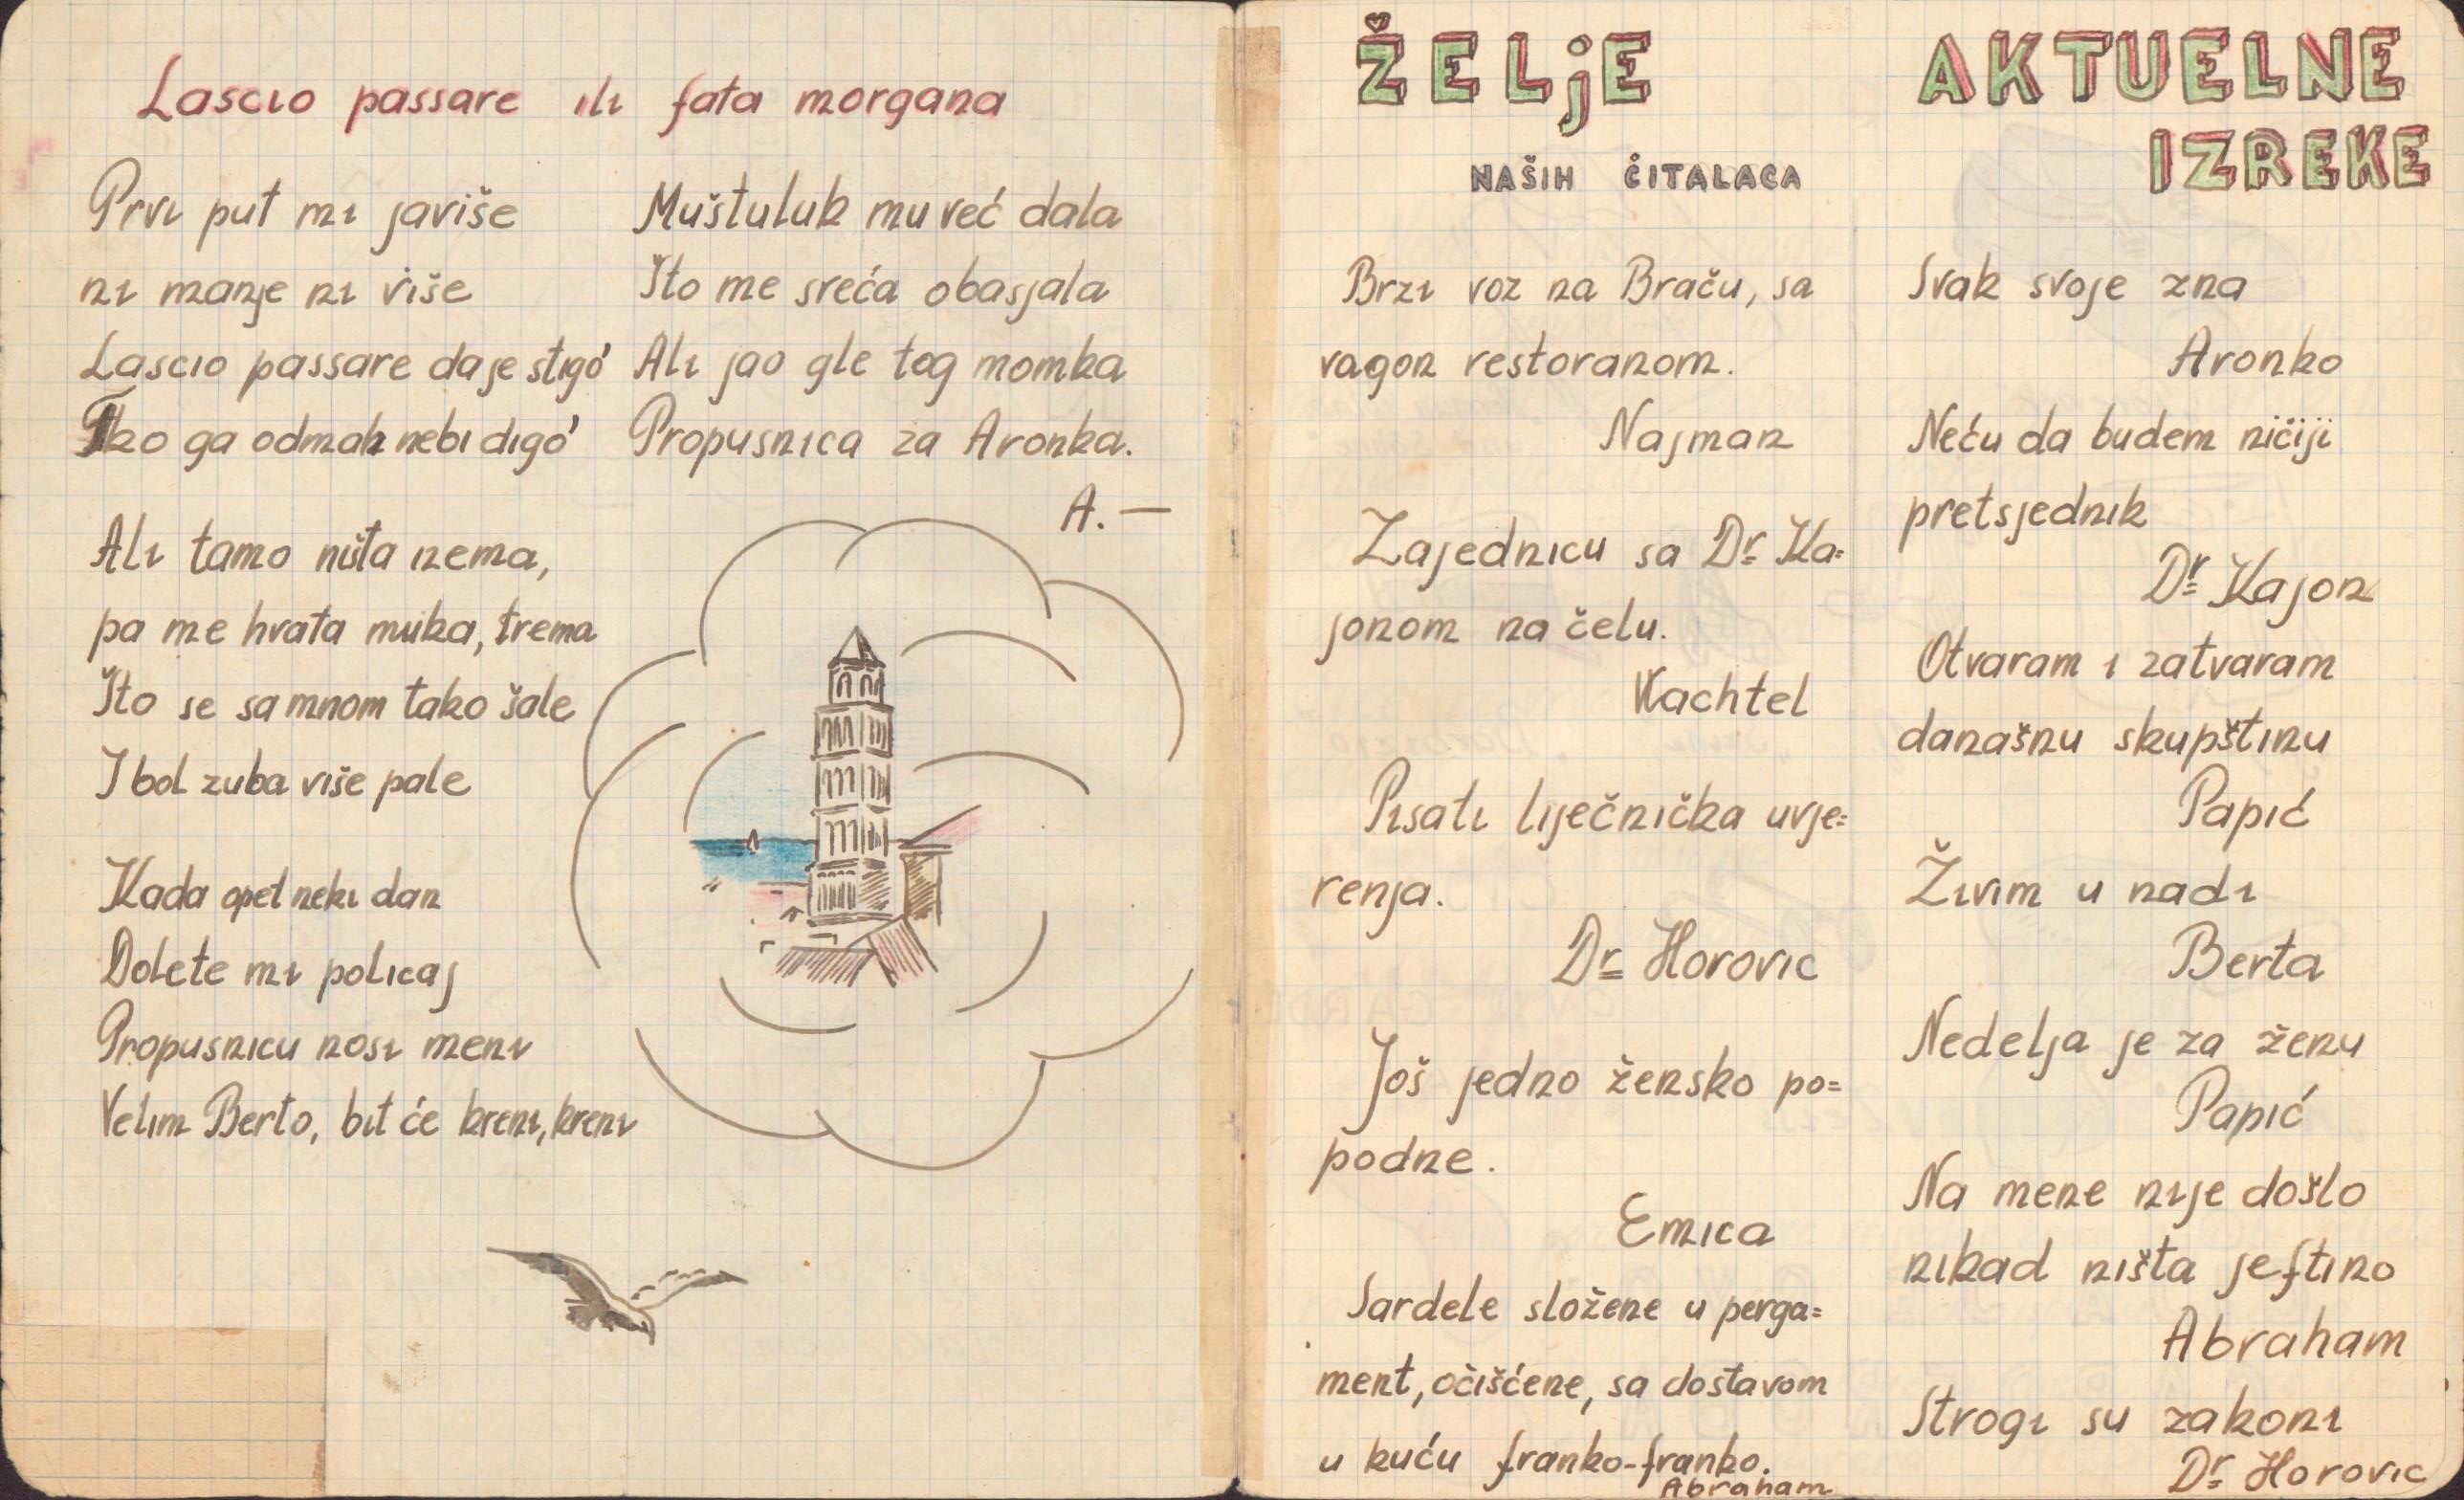 Lascio passare ili fata morgana
Prvi put mi javiše
ni manje ni više
Lascio passare da je stigo'
Tko ga odmah nebi digo'
Ali tamo ništa nema,
pa me hvata muka, trema
Što se sa mnom tako šale
I bol zuba više pale
Kada opet neki dan
Dolete mi policaj
Propusnicu nosi meni
Velim Berto, bit će kreni, kreni
Muštuluk mu već dala
Što me sreća obasjala
Ali jao gle tog momka
Propusnica za Aronka.
A. —
ŽELjE
NAŠIH ČITALACA
Brzi voz na Braču, sa
vagon restoranom.
Najman
Zajednicu sa Dr. Ka=
jonom na čelu.
Wachtel
Pisati liječnička uvje=
renja.
Dr. Horovic
Još jedno žensko po=
podne.
Emica
Sardele složene u perga=
ment, očišćene, sa dostavom
u kuću franko-franko.
Abraham
AKTUELNE
IZREKE
Svak svoje zna
Aronko
Neću da budem ničiji
pretsjednik
Dr. Kajon
Otvaram i zatvaram
današnu skupštinu
Papić
Živim u nadi
Berta
Nedelja je za ženu
Papić
Na mene nije došlo
nikad ništa jeftino
Abraham
Strogi su zakoni
Dr. Horovic